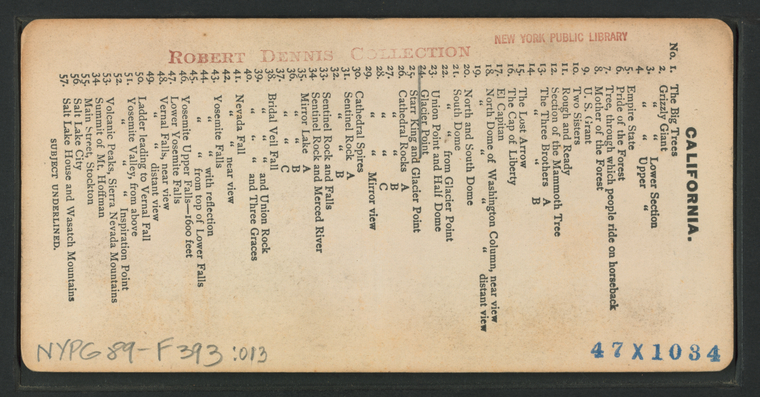 CALIFORNIA.
No. 1. The Big Trees
2. Grizzly Giant
3. " " Lower Section
4. " " Upper "
5. Empire State
6. Pride of the Forest
7. Tree, through which people ride on horseback
8. Mother of the Forest
9. U. S. Grant
10. Two Sisters
11. Rough and Ready
12. Section of the Mammoth Tree
13. The Three Brothers A
14. " " " B
15. The Lost Arrow
16. The Cap of Liberty
17. El Capitan
18. North Dome of Washington Column, near view
19. " " " " distant view
20. North and South Dome
21. South Dome
22. " " from Glacier Point
23. Union Point and Half Dome
24. Glacier Point
25. Starr King and Glacier Point
26. Cathedral Rocks A
27. " " B
28. " " C
29. " " Mirror view
30. Cathedral Spires
31. Sentinel Rock A
32. " " B
33. Sentinel Rock and Falls
34. Sentinel Rock and Merced River
35. Mirror Lake A
36. " " B
37. " " C
38. Bridal Veil Fall
39. " " " and Union Rock
40. " " " and Three Graces
41. Nevada Fall
42. " " near view
43. Yosemite Falls
44. " " with reflection
45. " " from top of Lower Falls
46. Yosemite Upper Falls—1600 feet
47. Lower Yosemite Falls
48. Vernal Falls, near view
49. " " distant view
50. Ladder leading to Vernal Fall
51. Yosemite Valley, from above
52. " " Inspiration Point
53. Volcanic Peaks, Sierra Nevada Mountains
54. Summit of Mt. Hoffman
55. Main Street, Stockton
56. Salt Lake City
57. Salt Lake House and Wasatch Mountains
SUBJECT UNDERLINED.
ROBERT DENNIS COLLECTION
NEW YORK PUBLIC LIBRARY
NYPG 89-F393:013
47X1034